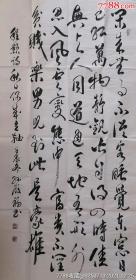 閑來無事不從容睡覺東窗日
已紅萬物靜觀皆自得四時佳
興與人同道通天地有形外
思入風雲變態中富貴不淫
貧賤樂男兒到此是豪雄
程顥詩秋日偶成